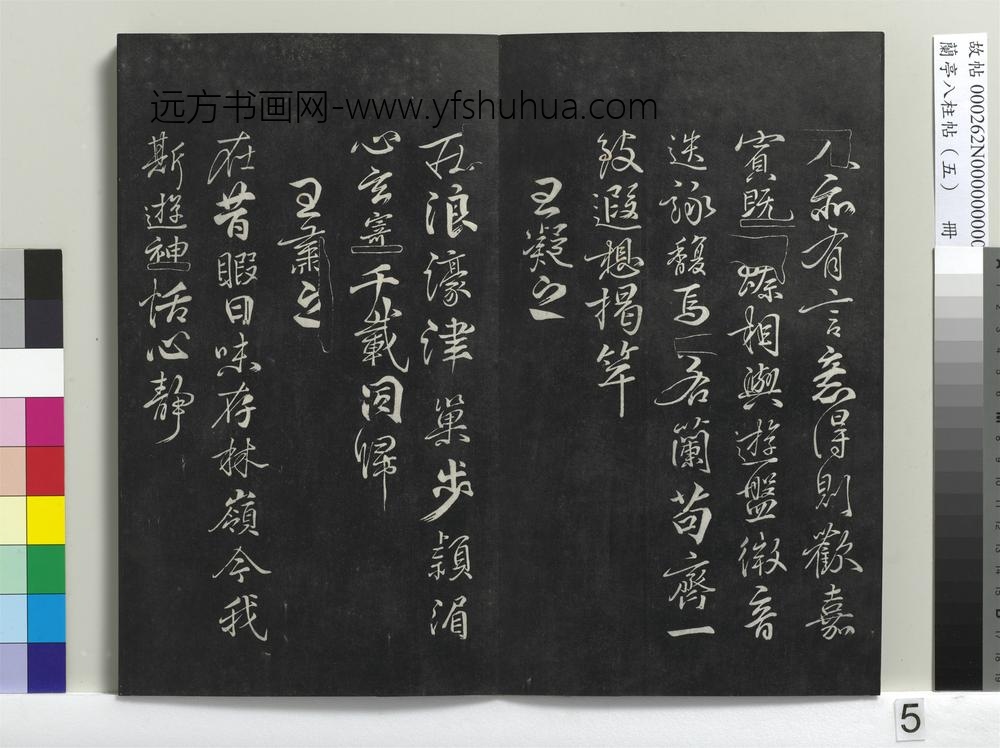 人亦有言意得則歡嘉
賓既臻相與遊盤微音
迭詠馥焉若蘭苟齊一
致遐想揭竿
王凝之
在浪濠津巢步潁湄
心玄寄千載同歸
王肅之
在昔暇日味存林嶺今我
斯遊神恬心靜
远方书画网-www.yfshuhua.com
故帖000262N00000000
蘭亭八柱帖(五) 冊
5